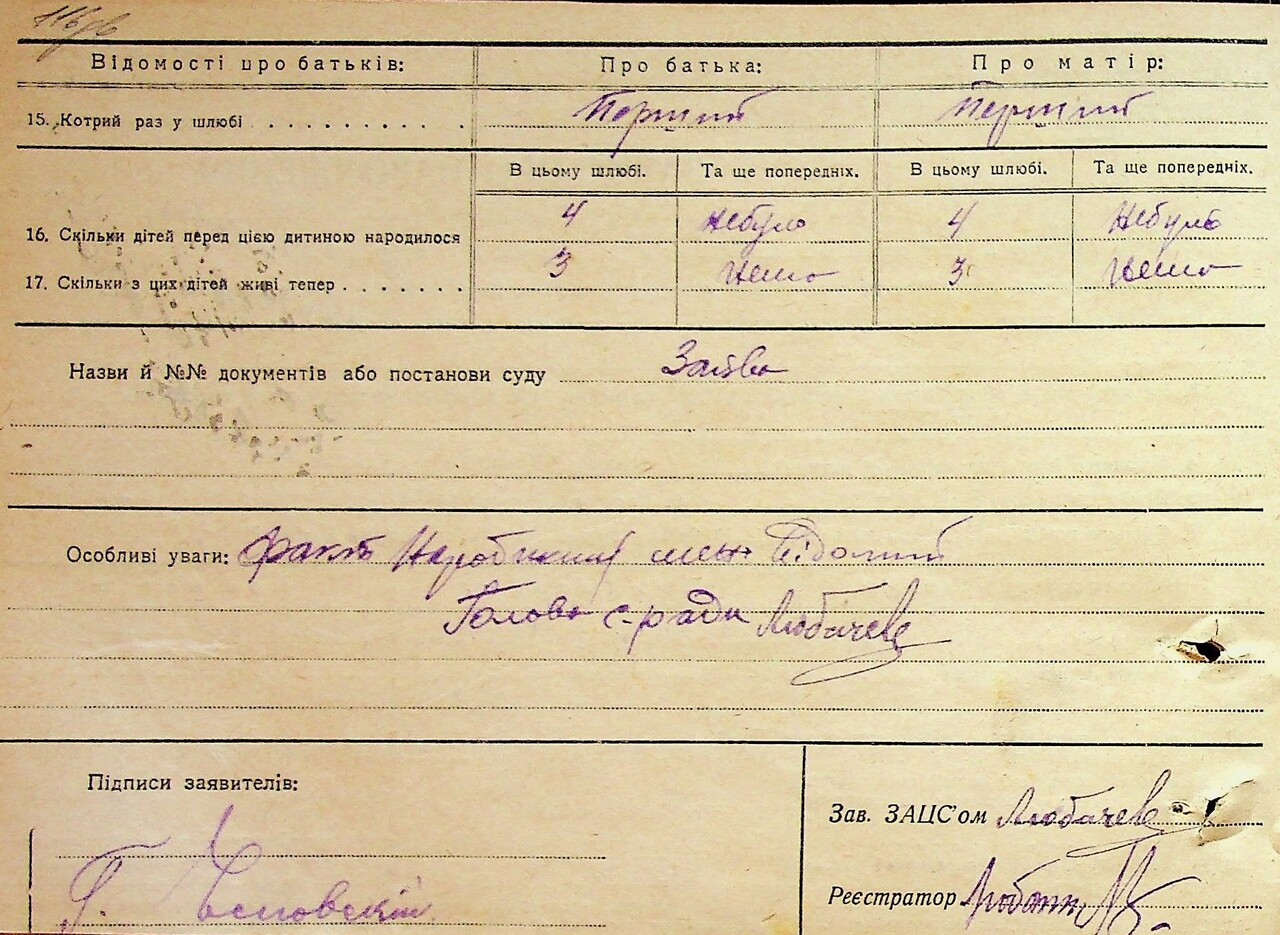 116
Відомості про батьків: Про батька: Про матір:
15. Котрий раз у шлюбі . . . . . . . . . . Перший Перший
В цьому шлюбі. Та ще попередніх. В цьому шлюбі. Та ще попередніх.
16. Скільки дітей перед цією дитиною народилося 4 Небуло 4 Небуло
17. Скільки з цих дітей живі тепер . . . . . . . 3 Нема 3 Нема
Назви й №№ документів або постанови суду Заява
Особливі уваги: Факт мені Відомий
Голова с-ради Любачев
Підписи заявителів:
Зав. ЗАЦС'ом Любачев
Реєстратор